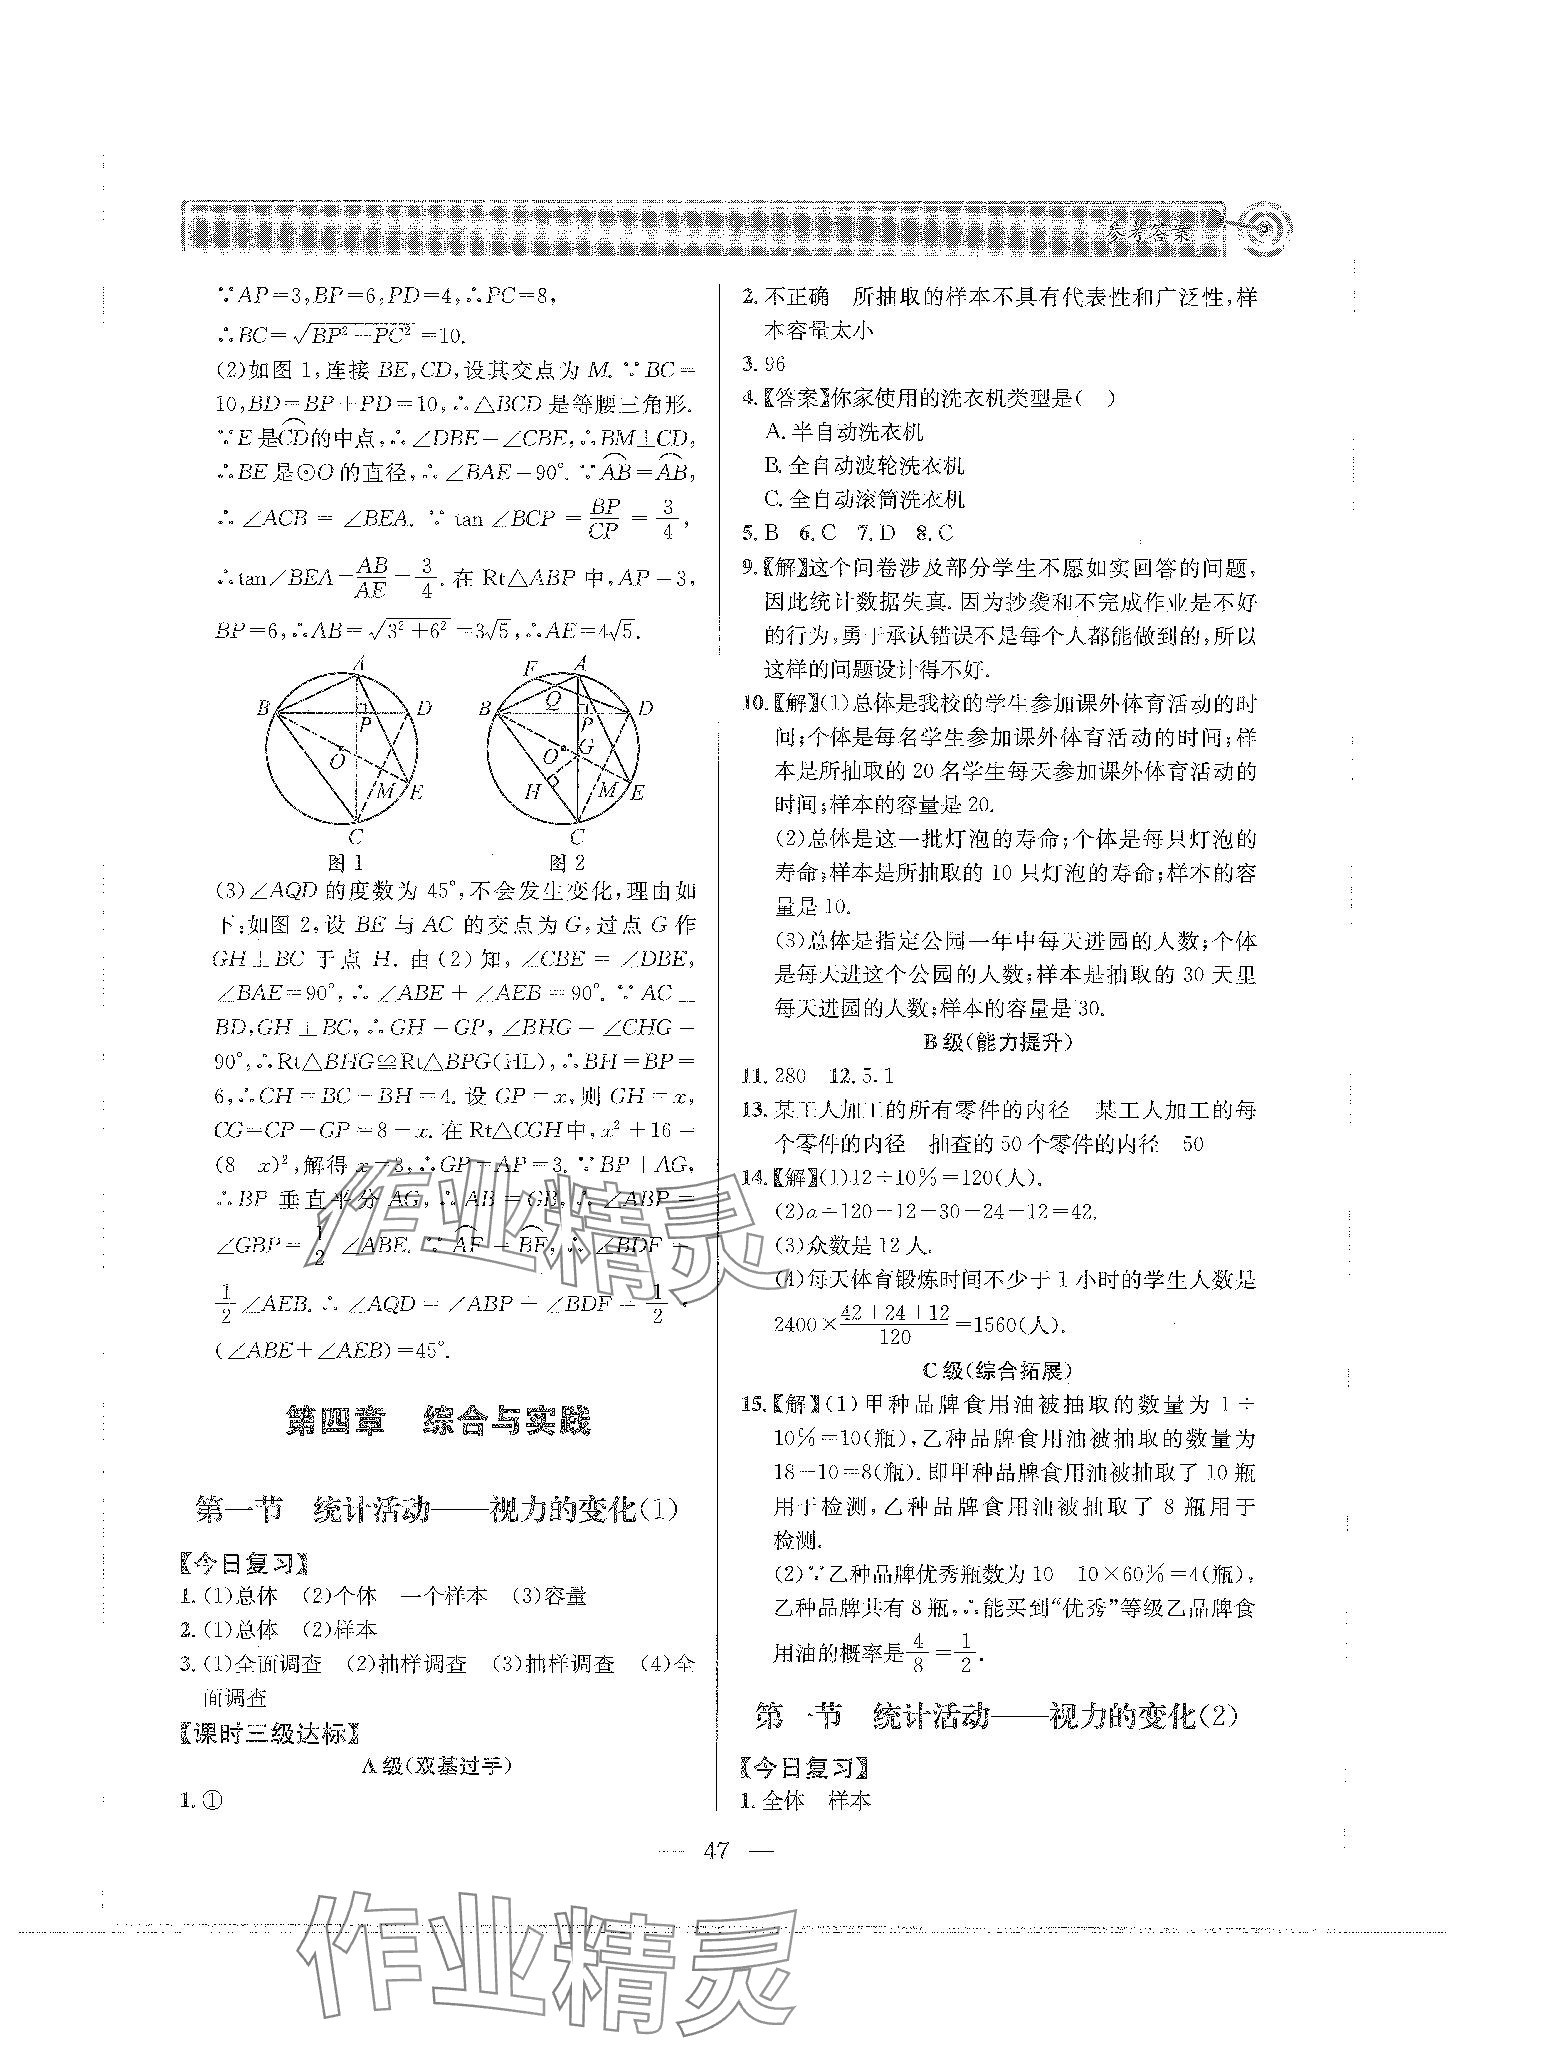 参考答案
∵AP=3,BP=6,PD=4,∴PC=8,
∴BC=√(BP²+PC²)=10.
(2)如图 1,连接 BE,CD,设其交点为 M. ∵BC=
10,BD=BP+PD=10,∴△BCD 是等腰三角形.
∵E 是⌒CD的中点,∴∠DBE=∠CBE,∴BM⊥CD,
∴BE 是⊙O 的直径,∴∠BAE=90°. ∵⌒AB=⌒AB,
∴∠ACB=∠BEA. ∵tan∠BCP=BP/CP=3/4,
∴tan∠BEA=AB/AE=3/4. 在 Rt△ABP 中,AP=3,
BP=6,∴AB=√(3²+6²)=3√5,∴AE=4√5.
A B D P O M E C
图 1
F A Q B D P O G H M E C
图 2
(3)∠AQD 的度数为 45°,不会发生变化,理由如
下:如图 2,设 BE 与 AC 的交点为 G,过点 G 作
GH⊥BC 于点 H. 由(2)知,∠CBE=∠DBE,
∠BAE=90°,∴∠ABE+∠AEB=90°. ∵AC⊥
BD,GH⊥BC,∴GH=GP,∠BHG=∠CHG=
90°,∴Rt△BHG≌Rt△BPG(HL),∴BH=BP=
6,∴CH=BC-BH=4. 设 GP=x,则 GH=x,
CG=CP-GP=8-x. 在 Rt△CGH中,x²+16=
(8-x)²,解得 x=3,∴GP=AP=3. ∵BP⊥AG,
∴BP 垂直平分 AG,∴AB=GB,∴∠ABP=
∠GBP=1/2∠ABE. ∵⌒AF=⌒BF,∴∠BDF=
1/2∠AEB. ∴∠AQD=∠ABP+∠BDF=1/2·
(∠ABE+∠AEB)=45°.
第四章 综合与实践
第一节 统计活动——视力的变化(1)
【今日复习】
1. (1)总体 (2)个体 一个样本 (3)容量
2. (1)总体 (2)样本
3. (1)全面调查 (2)抽样调查 (3)抽样调查 (4)全
面调查
【课时三级达标】
A 级(双基过手)
1. ①
2. 不正确 所抽取的样本不具有代表性和广泛性,样
本容量太小
3. 96
4.【答案】你家使用的洗衣机类型是( )
A. 半自动洗衣机
B. 全自动波轮洗衣机
C. 全自动滚筒洗衣机
5. B 6. C 7. D 8. C
9.【解】这个问卷涉及部分学生不愿如实回答的问题,
因此统计数据失真. 因为抄袭和不完成作业是不好
的行为,勇于承认错误不是每个人都能做到的,所以
这样的问题设计得不好.
10.【解】(1)总体是我校的学生参加课外体育活动的时
间;个体是每名学生参加课外体育活动的时间;样
本是所抽取的 20 名学生每天参加课外体育活动的
时间;样本的容量是 20.
(2)总体是这一批灯泡的寿命;个体是每只灯泡的
寿命;样本是所抽取的 10 只灯泡的寿命;样本的容
量是 10.
(3)总体是指定公园一年中每天进园的人数;个体
是每天进这个公园的人数;样本是抽取的 30 天里
每天进园的人数;样本的容量是 30.
B 级(能力提升)
11. 280 12. 5.1
13. 某工人加工的所有零件的内径 某工人加工的每
个零件的内径 抽查的 50 个零件的内径 50
14.【解】(1)12÷10%=120(人).
(2)a=120-12-30-24-12=42.
(3)众数是 12 人.
(4)每天体育锻炼时间不少于 1 小时的学生人数是
2400×(42+24+12)/120=1560(人).
C 级(综合拓展)
15.【解】(1)甲种品牌食用油被抽取的数量为 1÷
10%=10(瓶),乙种品牌食用油被抽取的数量为
18-10=8(瓶). 即甲种品牌食用油被抽取了 10 瓶
用于检测,乙种品牌食用油被抽取了 8 瓶用于
检测.
(2)∵乙种品牌优秀瓶数为 10-10×60%=4(瓶),
乙种品牌共有 8 瓶,∴能买到“优秀”等级乙品牌食
用油的概率是4/8=1/2.
第一节 统计活动——视力的变化(2)
【今日复习】
1. 全体 样本
— 47 —
作业精灵
作业精灵